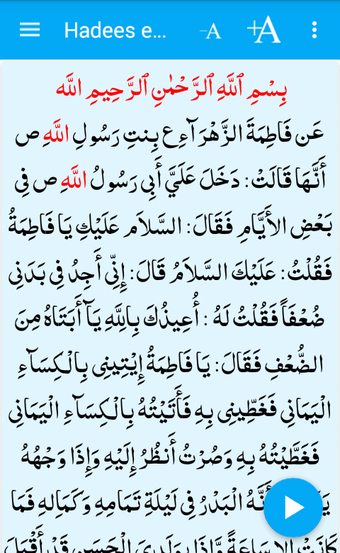 Hadees e... -A +A
بِسْمِ ٱللَّهِ ٱلرَّحْمٰنِ ٱلرَّحِيمِ اللَّه
عَن فَاطِمَةَ الزَّهْرَآءِع بِنتِ رَسُولِ اللَّهِ ص
أَنَّهَا قَالَتْ: دَخَلَ عَلَيَّ أَبِي رَسُولُ اللَّهِ ص فِي
بَعْضِ الأَيَّامِ فَقَالَ: السَّلاَمُ عَلَيْكِ يَا فَاطِمَةُ
فَقُلْتُ: عَلَيْكَ السَّلاَمُ قَالَ: إِنِّي أَجِدُ فِي بَدَنِي
ضُعْفَاً فَقُلْتُ لَهُ : أُعِيذُكَ بِاللَّهِ يَآ أَبَتَاهُ مِنَ
الضُّعْفِ فَقَالَ: يَا فَاطِمَةُ إِيْتِينِي بِالْكِسَآءِ
الْيَمَانِي فَغَطِّينِي بِهِ فَأَتَيْتُهُ بِالْكِسَآءِ الْيَمَانِي
فَغَطَّيْتُهُ بِهِ وَصُرْتُ أَنْظُرُ إِلَيْهِ وَإِذَا وَجْهُهُ
أَنَّهُ الْبَدْرُ فِي لَيْلَةِ تَمَامِهِ وَكَمَالِهِ فَمَا
كَانَتْ إِلاَ سَاعَةً وَإِذَا بِوَلَدِيَ الْحَسَنِ قَدْ أَقْبَلَ